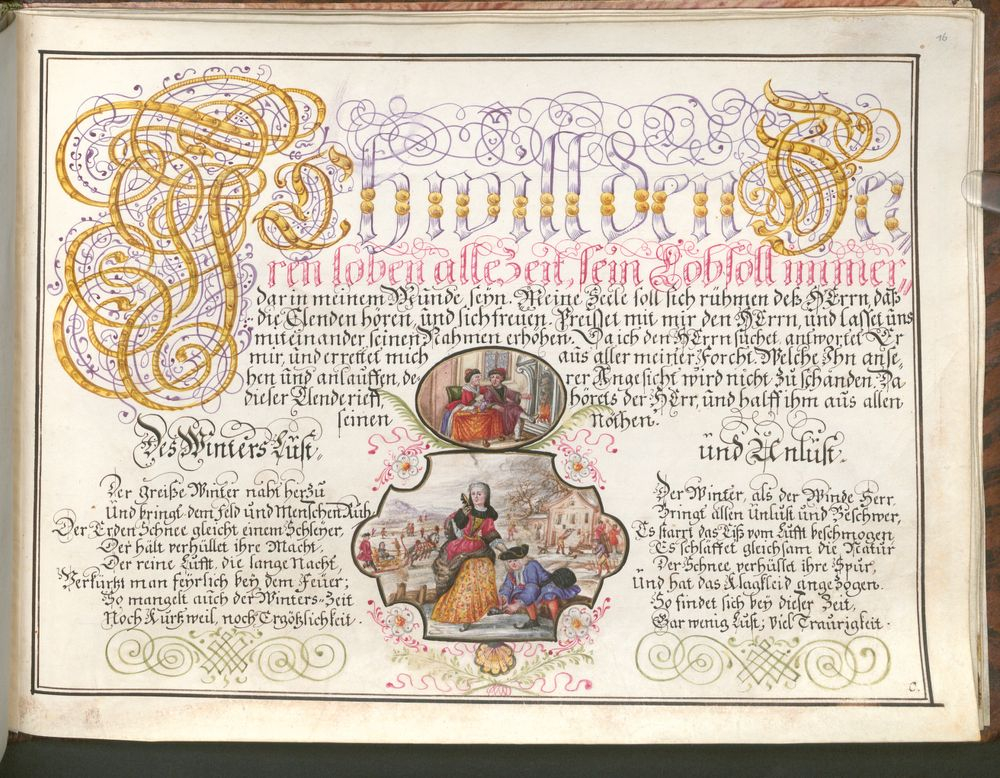 16
Ich will den Her„
ren loben alle Zeit, sein Lob soll immer„
dar in meinem Munde seyn. Meine Seele soll sich rühmen deß HErrn, daß
die Elenden hören, und sich freuen. Preiset mit mir den HErrn, und lasset uns
mit einander seinen Nahmen erhöhen. Da ich den HErrn suchet, antwortet Er
mir, und errettet mich aus aller meiner Forcht. Welche Ihn anse-
hen und anlauffen, de- rer Angesicht wird nicht zu schanden. Da
dieser Elende rieff, hörets der HErr, und halff ihm aus allen
seinen Nöthen.
Des Winters Lust,
Der Greiße Winter naht herzu
Und bringt dem Feld und Menschen Ruh,
Der Erden Schnee gleicht einem Schleyer,
Der hält verhüllet ihre Macht,
Der reine Lufft, die lange Nacht,
Verkürtzt man feyrlich bey dem Feuer;
So mangelt auch der Winters-Zeit
Noch Kurtzweil, noch Ergötzlichkeit.
und Unlust.
Der Winter, als der Winde Herr,
Bringt allen Unlust und Beschwer,
Es starrt das Eiß vom Lufft beschmogen
Es schlaffet gleichsam die Natur
Der Schnee verhüllt ihre Spur,
Und hat das Klagkleid angezogen.
So findet sich bey dieser Zeit,
Gar wenig Lust; viel Traurigkeit.
C.